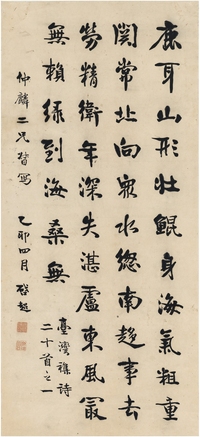 鹿耳山形壯鯤身海氣粗重
關常北向眾水總南趨事去
勞精衛年深失湛盧東風最
無賴綠到海桑無
臺灣雜詩
二十首之一
仲麟二兄督寫
乙卯四月 啓超